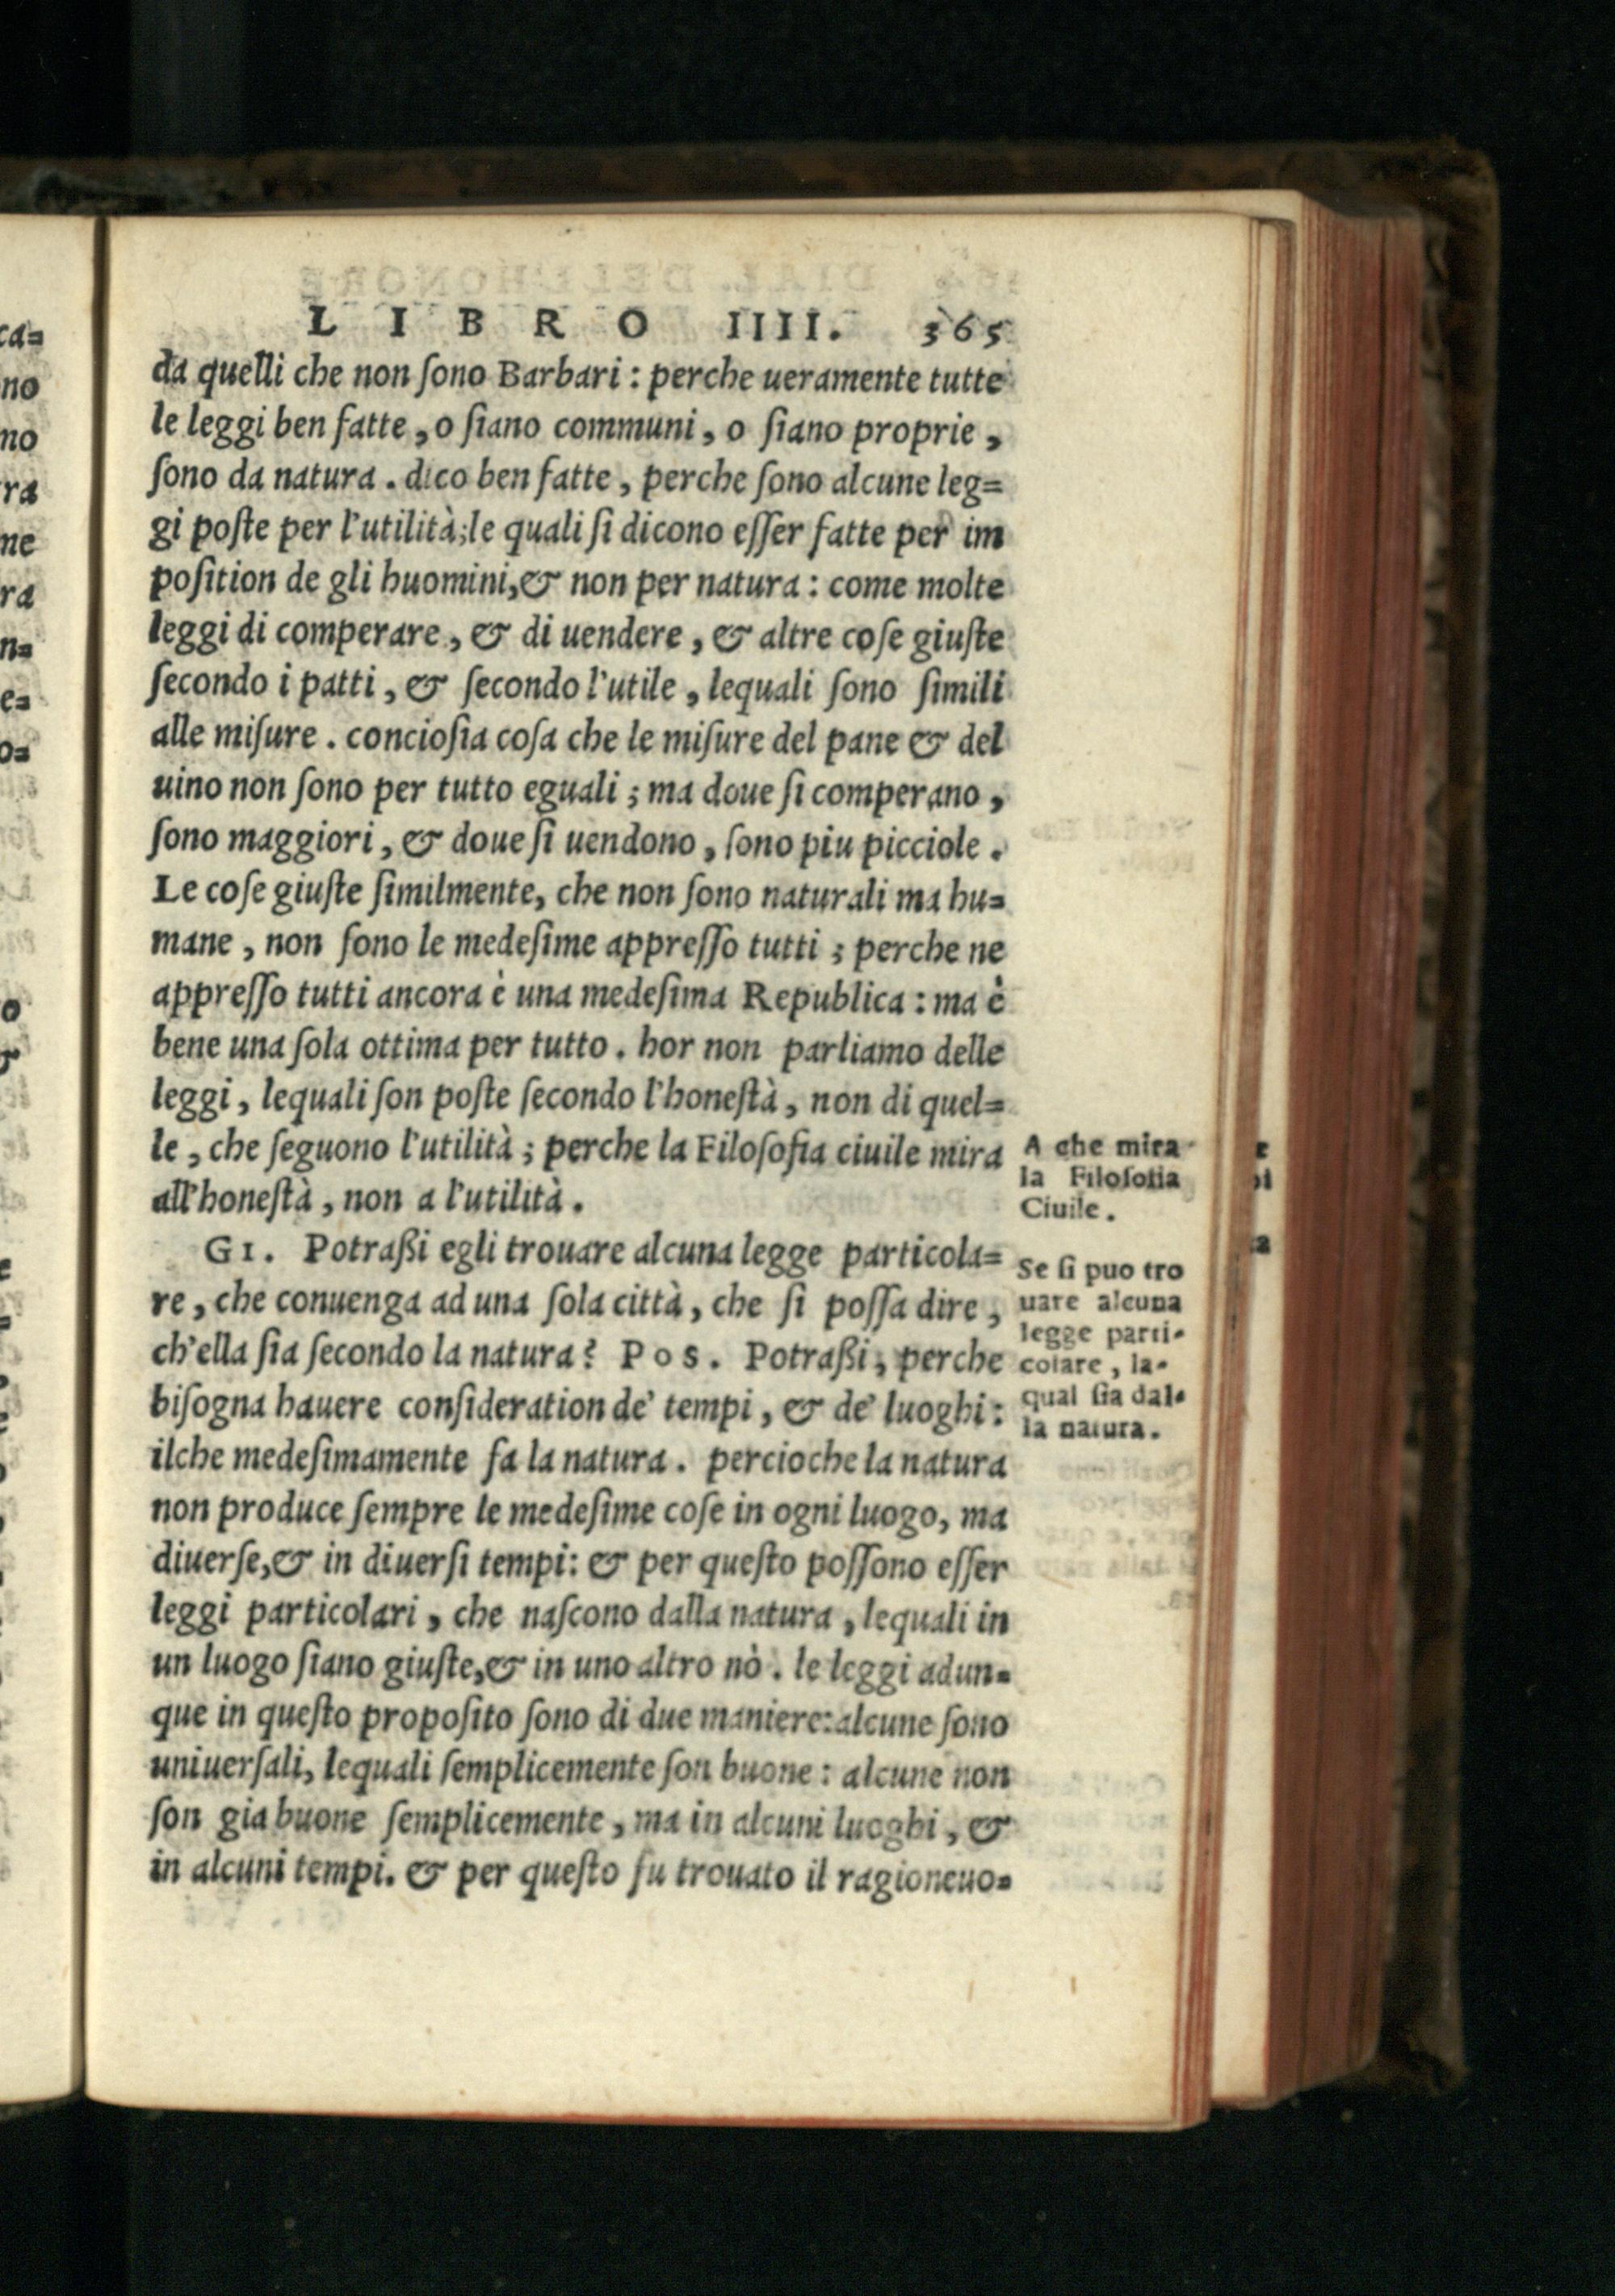 LIBRO IIII. 365
da quelli che non ſono Barbari : perche ueramente tutte
le leggi ben fatte , o ſiano communi , o ſiano proprie ,
ſono da natura . dico ben fatte , perche ſono alcune leg=
gi poſte per l'utilità; le quali ſi dicono eſſer fatte per im
poſition de gli huomini, & non per natura : come molte
leggi di comperare , & di uendere , & altre coſe giuſte
ſecondo i patti , & ſecondo l'utile , lequali ſono ſimili
alle miſure . concioſia coſa che le miſure del pane & del
uino non ſono per tutto eguali ; ma doue ſi comperano ,
ſono maggiori , & doue ſi uendono , ſono piu picciole .
Le coſe giuſte ſimilmente, che non ſono naturali ma hu=
mane , non ſono le medeſime appreſſo tutti ; perche ne
appreſſo tutti ancora è una medeſima Republica : ma è
bene una ſola ottima per tutto . hor non parliamo delle
leggi , lequali ſon poſte ſecondo l'honeſtà , non di quel=
le , che ſeguono l'utilità ; perche la Filoſofia ciuile mira
all'honeſtà , non a l'utilità .
A che mira
la Filoſofia
Ciuile .
GI. Potraßi egli trouare alcuna legge particola=
re , che conuenga ad una ſola città , che ſi poſſa dire ,
ch'ella ſia ſecondo la natura ? POS. Potraßi ; perche
biſogna hauere conſideration de' tempi , & de' luoghi :
ilche medeſimamente fa la natura . percioche la natura
non produce ſempre le medeſime coſe in ogni luogo, ma
diuerſe, & in diuerſi tempi: & per queſto poſſono eſſer
leggi particolari , che naſcono dalla natura , lequali in
un luogo ſiano giuſte, & in uno altro nò . le leggi adun=
que in queſto propoſito ſono di due maniere: alcune ſono
uniuerſali, lequali ſemplicemente ſon buone : alcune non
ſon gia buone ſemplicemente , ma in alcuni luoghi , &
in alcuni tempi. & per queſto fu trouato il ragioneuo=
Se ſi puo tro
uare alcuna
legge parti=
colare , la=
qual ſia dal=
la natura .